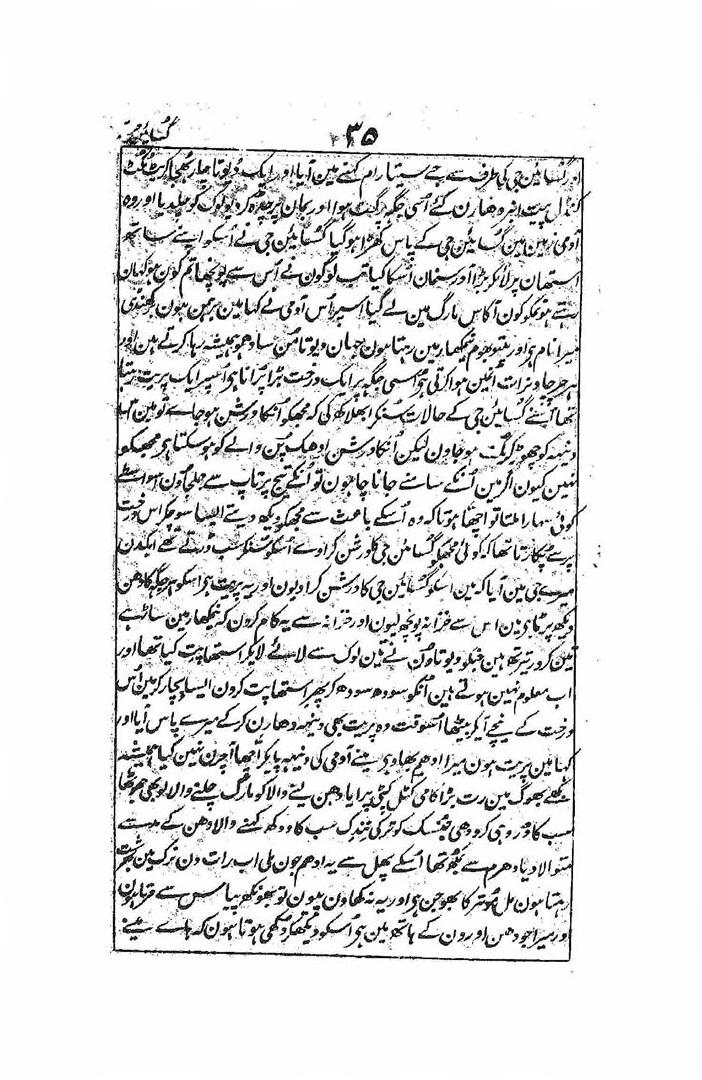 گسائین چرتر
۳۵
اور گسائین جی کی طرف سے جے سیتا رام کہنے مین آیا اور ایک دیوتا چار بھجا کریٹ مکٹ
کنڈل پیت انبر دھارن کئے اُسی جگہ پرگٹ ہوا اور بمان پر چڑھ کر دیولوک کو چلدیا اور وہ
آدمی زمین مین گسائین جی کے پاس کھڑا ہو گیا گسائین جی نے اُسکو اپنے ساتھ
استھان پر لا کر بڑا آدر سنمان اُسکا کیا تب لوگون نے اُس سے پوچھا تم کون ہو کہان
رہتے ہو تمکو کون آکاس مارگ مین لے گیا اسپر اُس آدمی نے کہا مین برہمن ہون
میرا نام ہے اور نیمکھار مین رہتا ہون جہان دیوتا مُن سادھو ہمیشہ رہا کرتے ہین اور
ہر چرچا دن رات ہوا کرتی ہے اُسی جگہ پر ایک درخت بڑا پرانا ہے اُسپر ایک پریت رہتا
تھا اُسنے گسائین جی کے حالات سنکر ابھلاکھ کی کہ مجھکو اُنکا درشن ہو جاے تو مین
دیہہ کو چھوڑ کر مکت ہو جاون لیکن اُنکا درشن ادھک پُن والے کو ہو سکتا ہے مجھکو
نہین کیون اگر مین اُنکے سامنے جانا چاہون تو اُنکے تیج پرتاپ سے جلجاؤن اسواسطے
کوئی سہارا ملتا تو اچھا ہوتا کہ وہ اُسکے باعث سے مجھکو دیکھ دیتے ایسا سوچکر اس درخت
پر سے پکارتا تھا کہ کوئی مجھکو گسائین جی کا درشن کرا دے اُسکو سنکر سب ڈرتے تھے ایکدن
میرے جی مین آیا کہ مین اسکو گسائین جی کا درشن کرا دیون اور یہ پریت ہے اسکو ہر جگہ کا دھن
دیکھ پڑتا ہے مین اس سے خزانہ پوچھ لیون اور خزانہ سے یہ کام کرون کہ نیمکھار مین ساڑھے
تین کرور تیرتھ ہین جنکو دیوتاؤن نے تین لوک سے لائے لا کر استھاپت کیا تھا اور
اب معلوم نہین ہوتے ہین اُنکو سودھ سودھ کر پھر استھاپت کرون ایسا بچار کر مین اُس
درخت کے نیچے آ کر بیٹھا اُسوقت وہ پریت بھی دیہہ دھارن کر کے میرے پاس آیا اور
کہا مین پریت ہون میرا ادھم بھاو ہے مینے آدمی کی دیہہ پا کر اچھا آچرن نہین کیا ہمیشہ
بھوگ مین رت بڑا کامی کٹل کپٹی پرایا دھن لینے والا کو مارگ چلنے والا لوبھی جھوٹھا
سب کا دروہی کرودھی کا نندک سب کا دوکھ کہنے والا دھن کے مد سے
متوالا دیا دھرم سے تھا اُسکے پھل سے یہ ادھم جون ملی اب رات دن نرک مین
رہتا ہون مل موتر کا بھوجن ہے اور یہ نہ کھاون پیون تو بھوکھ پیاس سے مرتا ہون
اور میرا جو دھن اورون کے ہاتھ مین ہے اُسکو دیکھکر دکھی ہوتا ہون کہ ہاے مینے